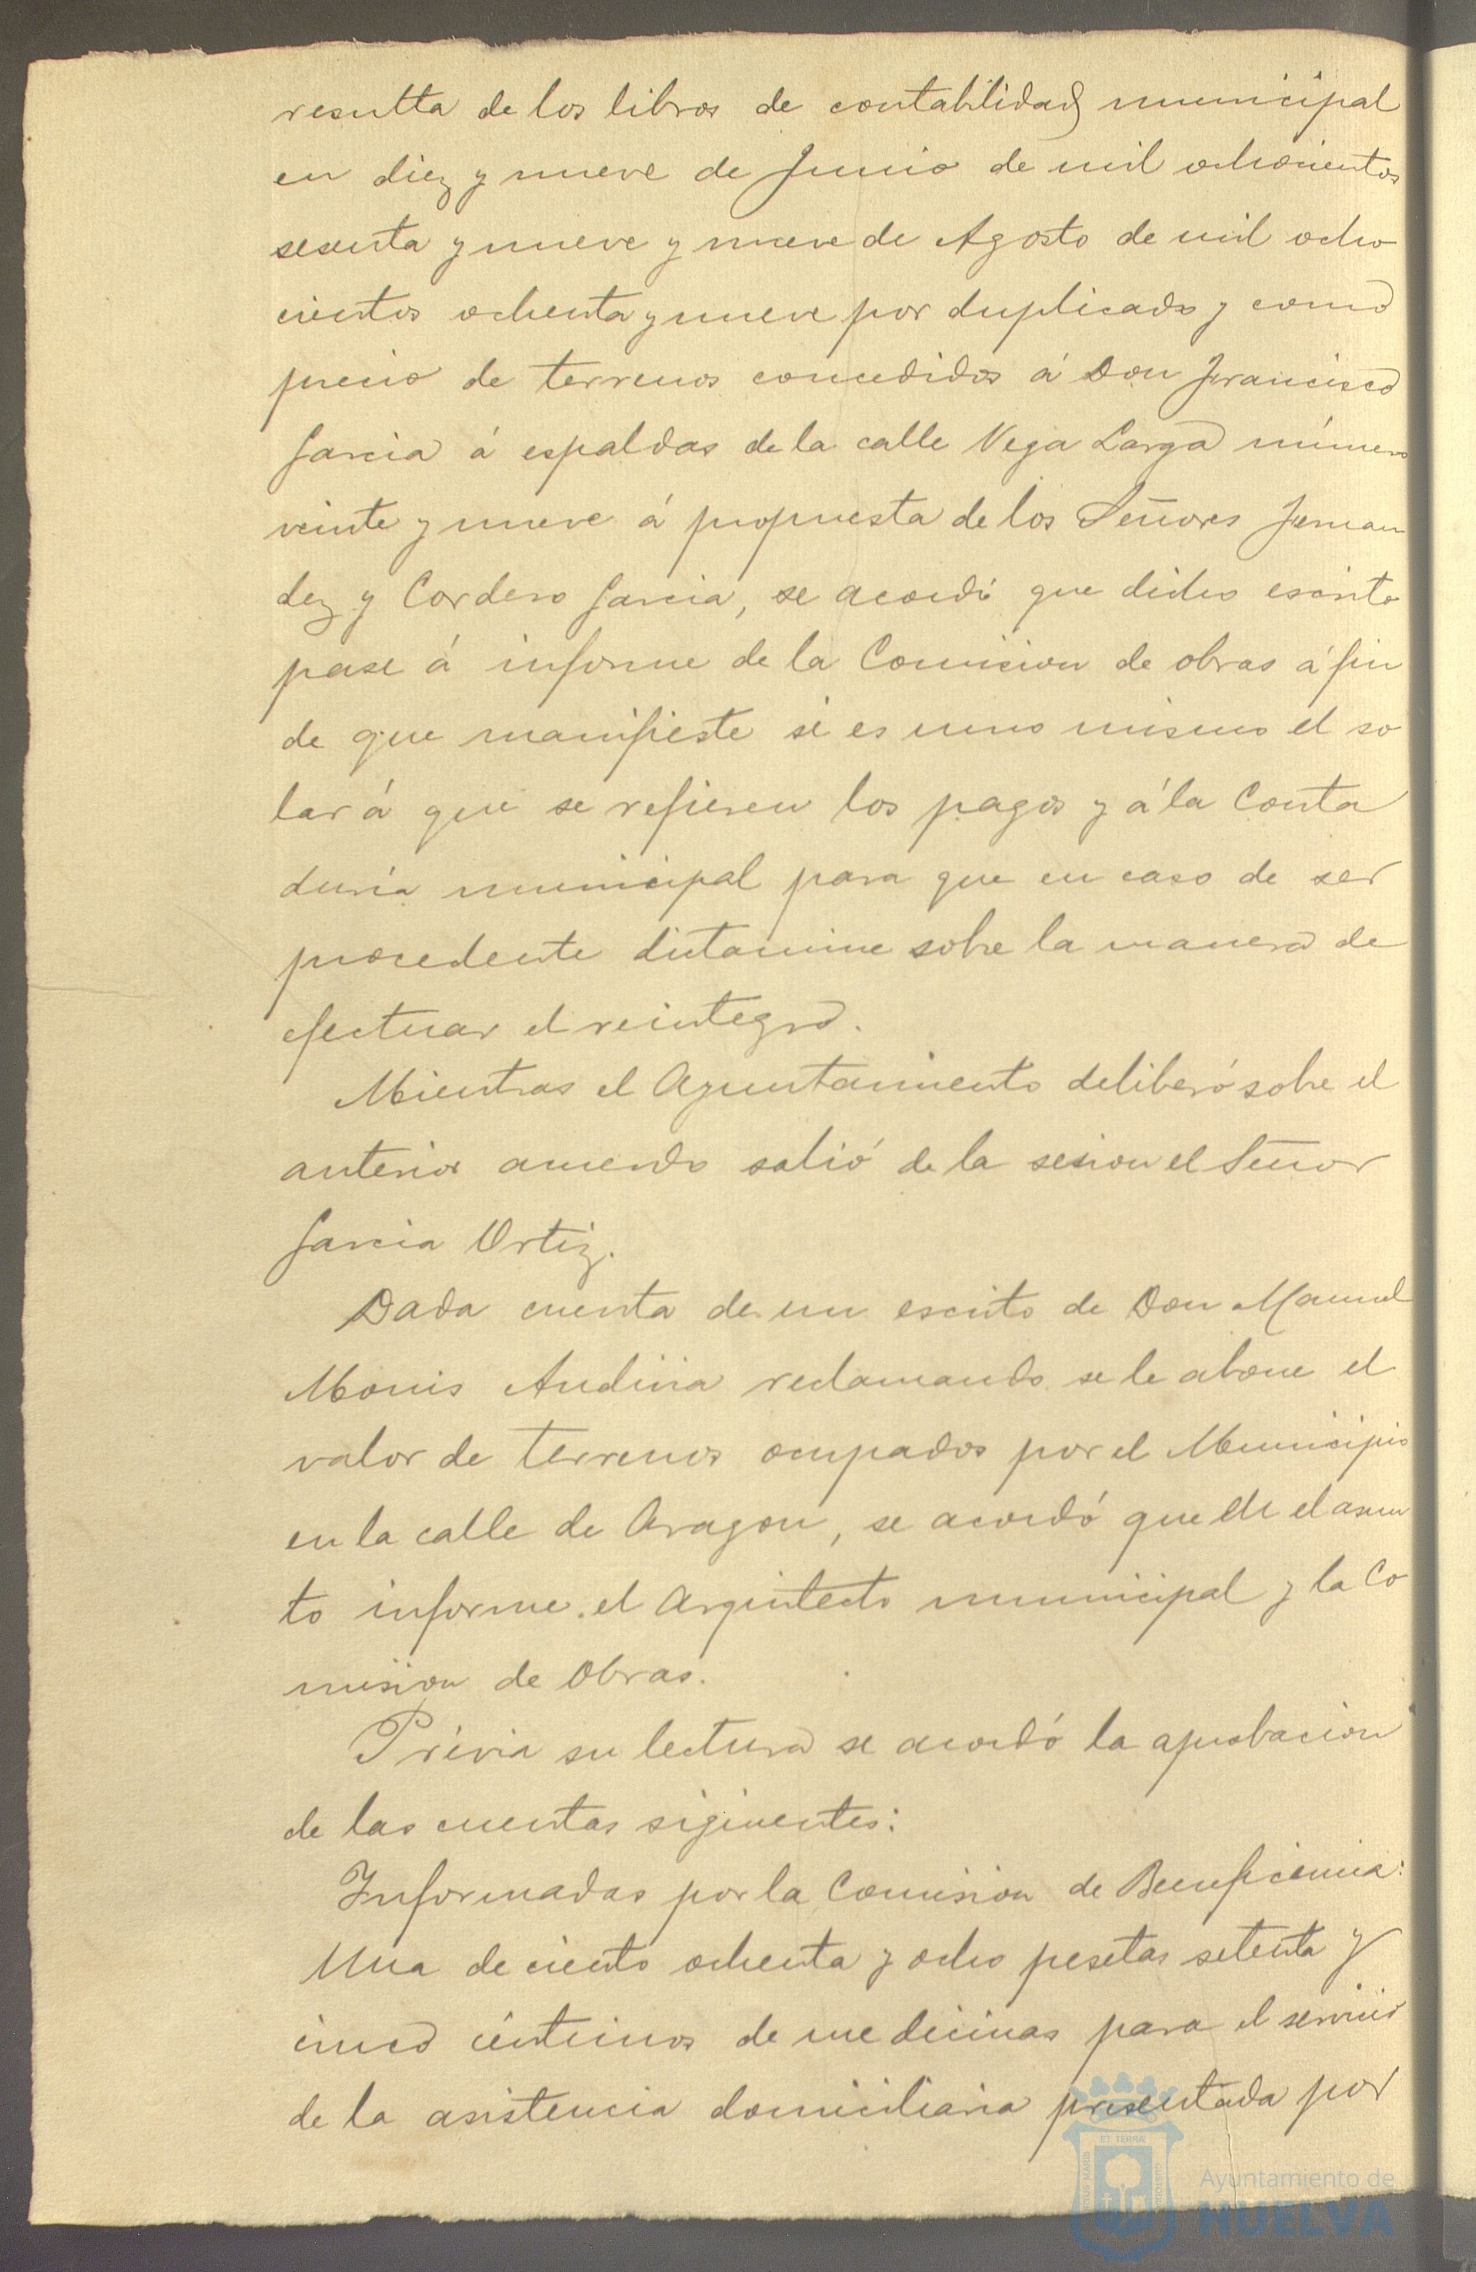 resulta de los libros de contabilidad municipal
en diez y nueve de Junio de mil ochocientos
sesenta y nueve y nueve de Agosto de mil ocho
cientos ochenta y nueve por duplicado y como
precio de terrenos concedidos á Don Francisco
Garcia á espaldas de la calle Vega Larga número
veinte y nueve á propuesta de los Señores Fernan
dez y Cordero Garcia, se acordó que dicho escrito
pase á informe de la Comision de obras á fin
de que manifieste si es uno mismo el so
lar á que se refieren los pagos y á la Conta
duría municipal para que en caso de ser
procedente dictamine sobre la manera de
efectuar el reintegro.
Mientras el Ayuntamiento deliberó sobre el
anterior acuerdo salió de la sesion el Señor
Garcia Ortiz.
Dada cuenta de un escrito de Don Manuel
Monis reclamando se le abone el
valor de terrenos ocupados por el Municipio
en la calle de Aragon, se acordó que en el asun
to informe el Arquitecto municipal y la Co
mision de Obras.
Prévia su lectura se acordó la aprobacion
de las cuentas siguientes:
Informadas por la Comision de Beneficencia:
Una de ciento ochenta y ocho pesetas setenta y
cinco céntimos de medicinas para el servicio
de la asistencia domiciliaria presentada por
Ayuntamiento de
HUELVA